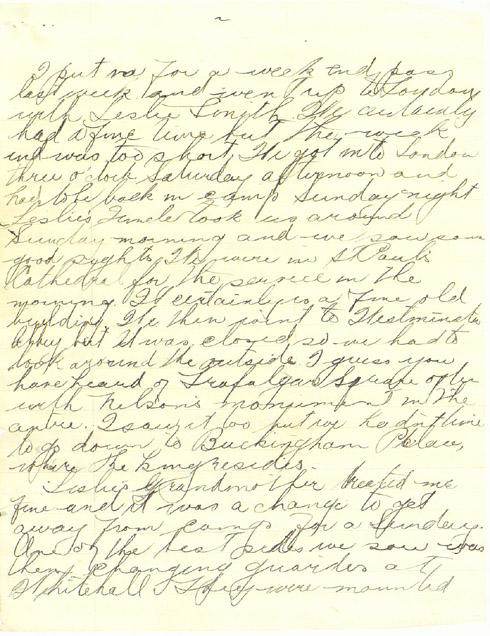 I put in for a week end pass
last week and went up to London
with Leslie Smith. We certainly
had a fine time but the week
end was too short. We got into London
three o'clock Saturday afternoon and
had to be back in camp Sunday night
Leslie's Uncle took us around
Sunday morning and we saw some
good sights. We were in St Pauls
Cathedral for the service in the
morning. It certainly is a fine old
building. We then went to Westminster
Abbey but it was closed so we had to
look around the outside. I guess you
have heard of Trafalgar Square often
with Nelson's monument in the
centre. I saw it too but we hadn't time
to go down to Buckingham Palace,
where the King resides.
Leslie's Grandmother treated me
fine and it was a change to get
away from camp for a Sunday.
One of the best sides we saw was
them changing guardes at
Whitehall. They were mounted